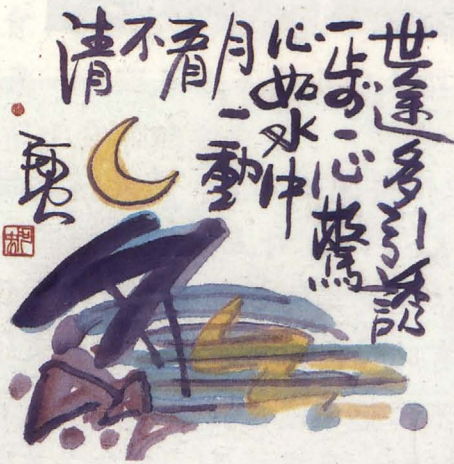 世途多引誘
一步一心驚
心如水中
月一動
看
不
清